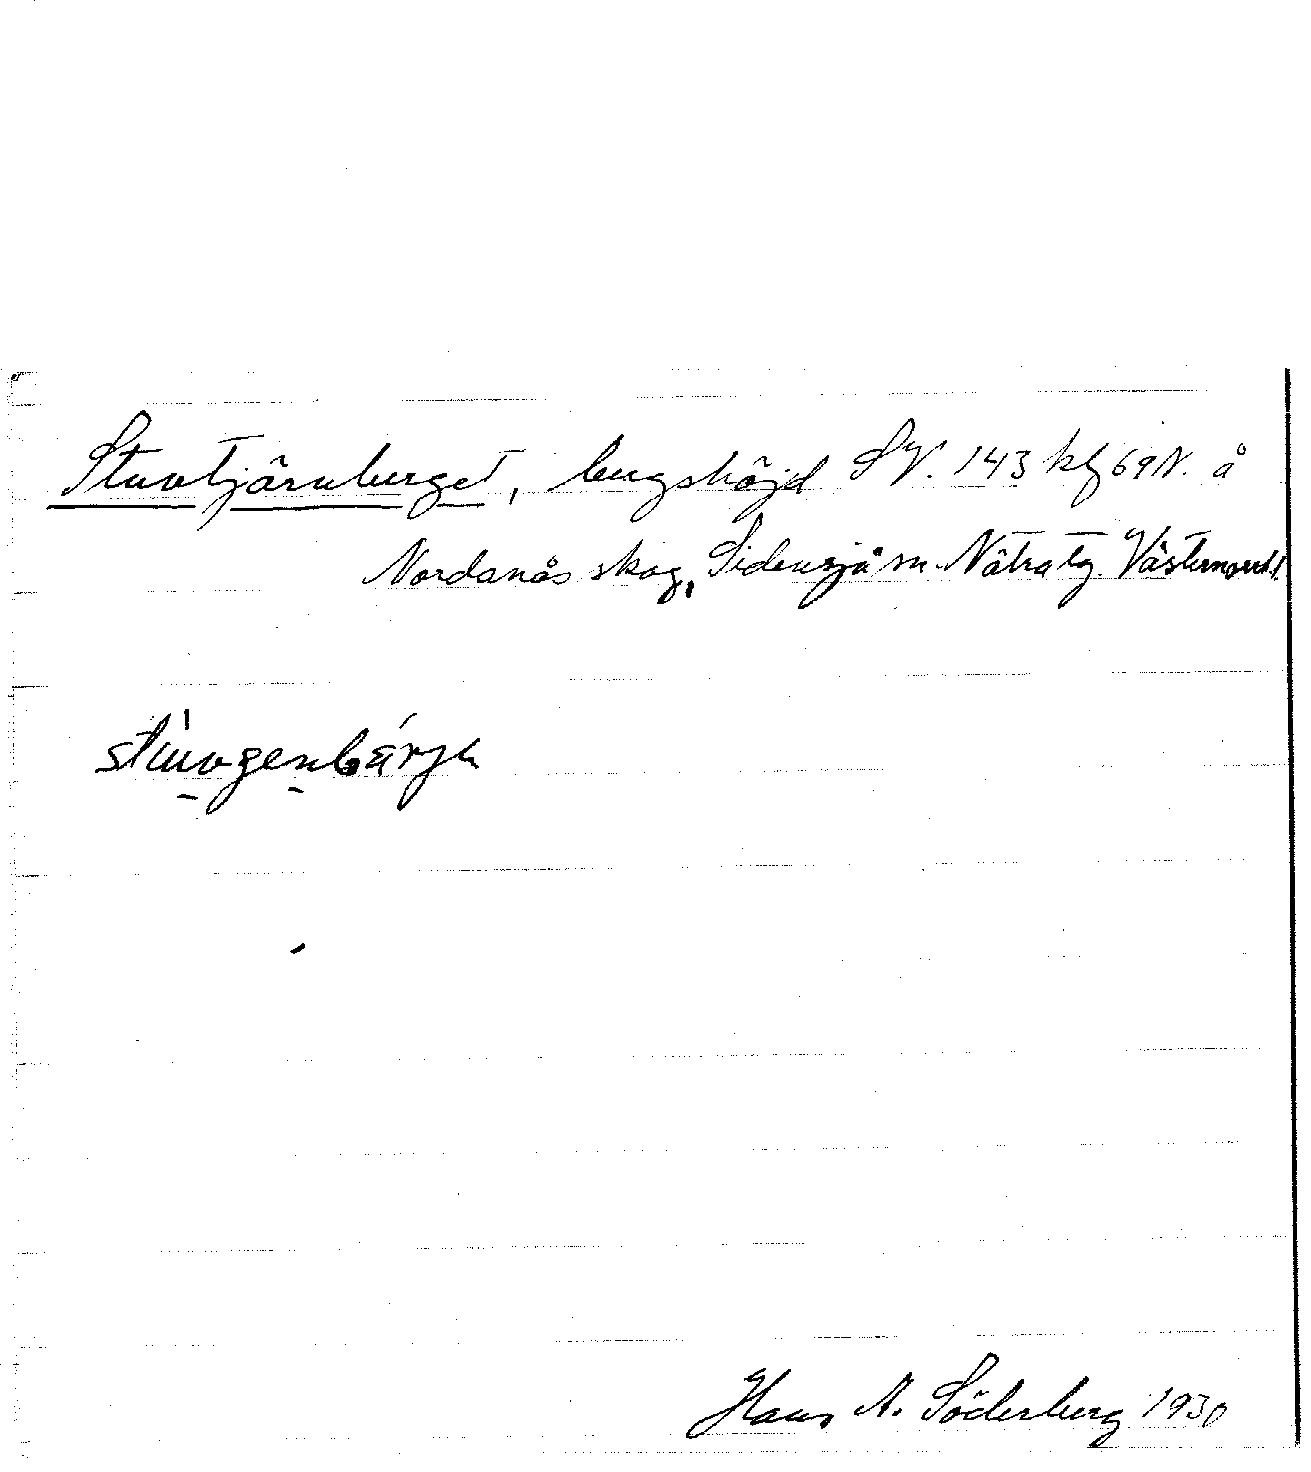 Stuvtjärnberget, bergshöjd SV. 143 kbf 69 N. å
Nordanås skog, Sidensjö sn. Nätra tg Västernorrl. l.
stúvɡenbárjə
Hans A. Söderberg 1930